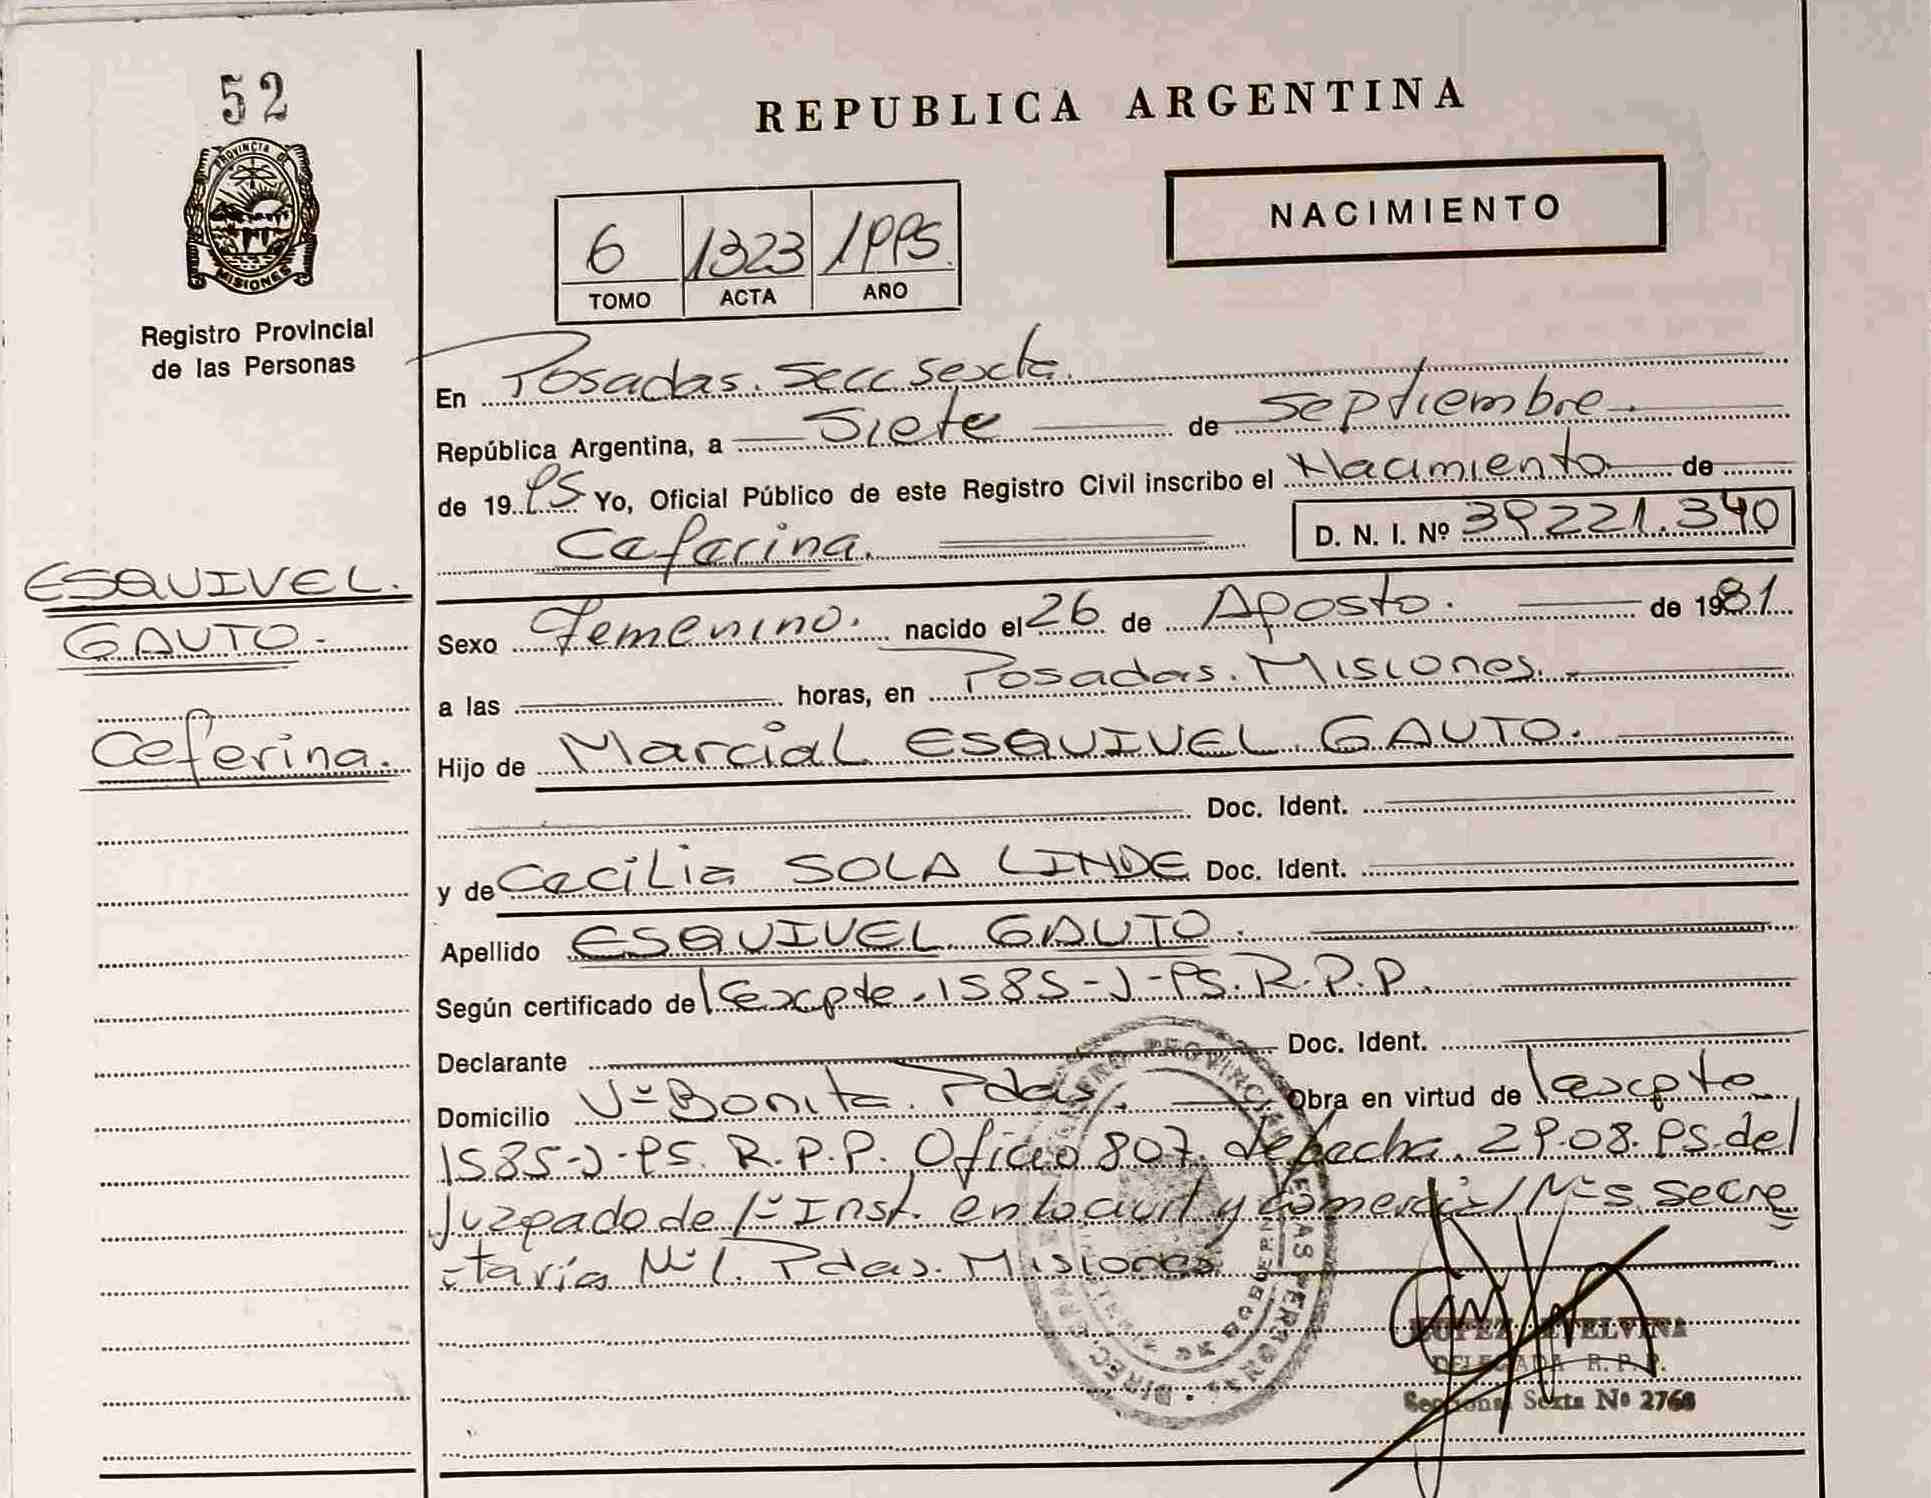 52
PROVINCIA DE
MISIONES
Registro Provincial
de las Personas
REPUBLICA ARGENTINA
NACIMIENTO
6 1323 1995
TOMO ACTA AÑO
En Posadas. Secc Sexta.
República Argentina, a Siete de Septiembre.
de 1995 Yo, Oficial Público de este Registro Civil inscribo el Nacimiento de
Ceferina. D. N. I. Nº 39.221.340
ESQUIVEL.
GAUTO.
Ceferina.
Sexo Femenino. nacido el 26 de Agosto. de 1981
a las horas, en Posadas. Misiones.
Hijo de Marcial ESQUIVEL GAUTO.
Doc. Ident.
y de Cecilia SOLA LINDE Doc. Ident.
Apellido ESQUIVEL GAUTO.
Según certificado de expte. 1585-J-95. R.P.P.
Declarante Doc. Ident.
Domicilio Vª Bonita. Pdas. Obra en virtud de expte
1585-J-95. R.P.P. Oficio 807. de fecha. 29.08.95. del
Juzgado de 1ª Inst. en lo civil y comercial Nº 5. Secre
taría Nº 1. Pdas. Misiones
PROVINCIAL
PERSONAS
LOPEZ ETELVINA
DELEGADA R. P. P.
Seccional Sexta Nº